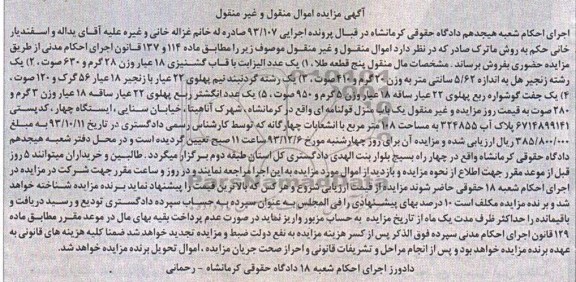 آگهی مزایده اموال منقول و غیر منقول
اجرای احکام شعبه هیجدهم دادگاه حقوقی کرمانشاه در قبال پرونده اجرایی ۹۳/۱۰۷ صادره له خانم غزاله خانی و غیره علیه آقای یداله و اسفندیار
خانی حکم به روش ماترک صادر که در نظر دارد اموال منقول و غیر منقول موصوف زیر را مطابق ماده ۱۱۴ و ۱۳۷ قانون اجرای احکام مدنی از طریق
مزایده حضوری بفروش برساند. مشخصات مال منقول پنج قطعه طلا، ۱) یک عدد الیزابت با قاب گشنیزی ۱۸ عیار وزن ۲۸ گرم و ۶۳۰ صوت، ۲) یک
رشته زنجیر هل به اندازه ۵/۶۲ سانتی متر به وزن ۲ گرم و ۴۱۰ صوت، ۳) یک رشته گردنبند نیم پهلوی ۲۲ عیار با زنجیر ۱۸ عیار ۵۶ گرک و ۱۲۰ صوت،
۴) یک جفت گوشواره ربع پهلوی ۲۲ عیار ساقه ۱۸ عیار وزن ۵ گرم و ۹۵۰ صوت، ۵) یک عدد انگشتر ربع پهلوی ۲۲ عیار ساقه ۱۸ عیار وزن ۳ گرم و
۲۸۰ صوت به قیمت روز مزایده و غیر منقول یک باب منزل قولنامه ای واقع در کرمانشاه، شهرک آناهیتا، خیابان سنایی، ایستگاه چهار، کدپستی
۶۷۱۴۸۹۹۱۴۱ پلاک آب ۳۲۴۸۵۵ به مساحت ۱۰۸ متر مربع با انشعابات چهارگانه که توسط کارشناس رسمی دادگستری در تاریخ ۹۳/۱۰/۱۱ به مبلغ
۳۸۵/۸۰۰/۰۰۰ ریال ارزیابی شده و مزایده آن برای روز چهارشنبه مورخ ۹۳/۱۲/۶ ساعت ۱۱ صبح تعیین گردیده است و در محل دفتر شعبه هیجدهم
دادگاه حقوقی کرمانشاه واقع در چهار راه بسیج بلوار بنت الهدی دادگستری کل استان طبقه دوم برگزار میگردد. طالبین و خریداران میتوانند ۵ روز
قبل از موعد مقرر جهت اطلاع از نحوه مزایده و بازدید از اموال مورد مزایده به این اجرا مراجعه نمایند و در روز و ساعت مقرر جهت شرکت در مزایده در
اجرای احکام شعبه ۱۸ حقوقی حاضر شوند مزایده از قیمت ارزیابی شروع و کسی که بالاترین قیمت را پیشنهاد نماید برنده مزایده شناخته خواهد
شد و برنده مزایده مکلف است ۱۰ درصد بهای پیشنهادی را فی المجلس به عنوان سپرده به حساب سپرده دادگستری تودیع و رسید دریافت و
باقیمانده را حداکثر ظرف مدت یک ماه از تاریخ مزایده به حساب مزبور واریز نماید در صورت عدم پرداخت بقیه بهای مال در موعد مقرر مطابق ماده
۱۲۹ قانون اجرای احکام مدنی سپرده فوق الذکر پس از کسر هزینه مزایده به نفع دولت ضبط و مزایده تجدید خواهد شد ضمنا کلیه هزینه های قانونی به
عهده برنده مزایده خواهد بود و پس از انجام مراحل و تشریفات قانونی و احراز صحت جریان مزایده، اموال تحویل برنده مزایده خواهد شد.
دادورز اجرای احکام شعبه ۱۸ دادگاه حقوقی کرمانشاه - رحمانی